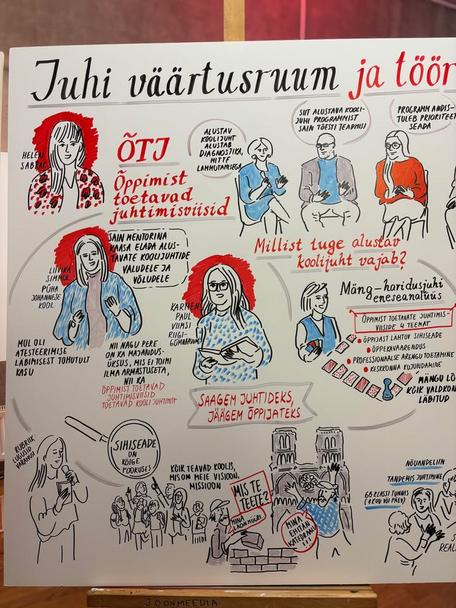 Juhi väärtusruum ja töör
HELEN
ÕTJ
Õppimist
toetavad
juhtimisviisid
ALUSTAV
KOOLIJUHT
ALUSTAB
DIAGNOSTIKA,
MITTE
LAHMIMISEGA
SIIT ALUSTAVA KOOLI-
JUHI PROGRAMMIST
SAIN TÕESTI TEADMISI
PROGRAMM ANDIS-
TULEB PRIORITEET
SEADA
Millist tuge alustav
koolijuht vajab?
SAIN MENTORINA
KAASA ELADA ALUS-
TAVATE KOOLIJUHTIDE
VALUDELE JA
VÕLUDELE
LIIVIKA
SIMMUL
PÜHA
JOHANNESE
KOOL
MUL OLI
ATESTEERIMISE
LÄBIMISEST TOHUTULT
KASU
NII NAGU PERE
ON KA MAJANDUS-
ÜKSUS, MIS EI TOIMI
ILMA ARMASTUSETA,
NII KA
ÕPPIMIST TOETAVAD
JUHTIMISVIISID
TOETAVAD KOOLI JUHTIMIST
KARMEN
PAUL
VIIMSI
RIIGI-
GÜMNAASIUM
SAAGEM JUHTIDEKS,
JÄÄGEM ÕPPIJATEKS
Mäng-haridusjuhi
eneseanalüüs
ÕPPIMIST TOETAVATE JUHTIMIS-
VIISIDE 4 TEEMAT
ÕPPIJAST LÄHTUV SIHISEADE
ÕPPEKAVAARENDUS
PROFESSIONAALSE ARENGU TOETAMINE
KESKKONNA KUJUNDAMINE
MÄNGU LÕ
KÕIK VALDKON
LÄBITUD
SIHISEADE
ON
KÕIGE
POORUSES
KÕIK TEAVAD KOOLIS,
MIS ON MEIE VISIOON,
MISSIOON
MIS TE
TEETE?
MINA
LAON MÜÜRI
MINA
EHITAN
KATEDRAALI
!!!
NÕUANDELIIN
TANDEMIS JUHTIMINE
JOONMEEDIA